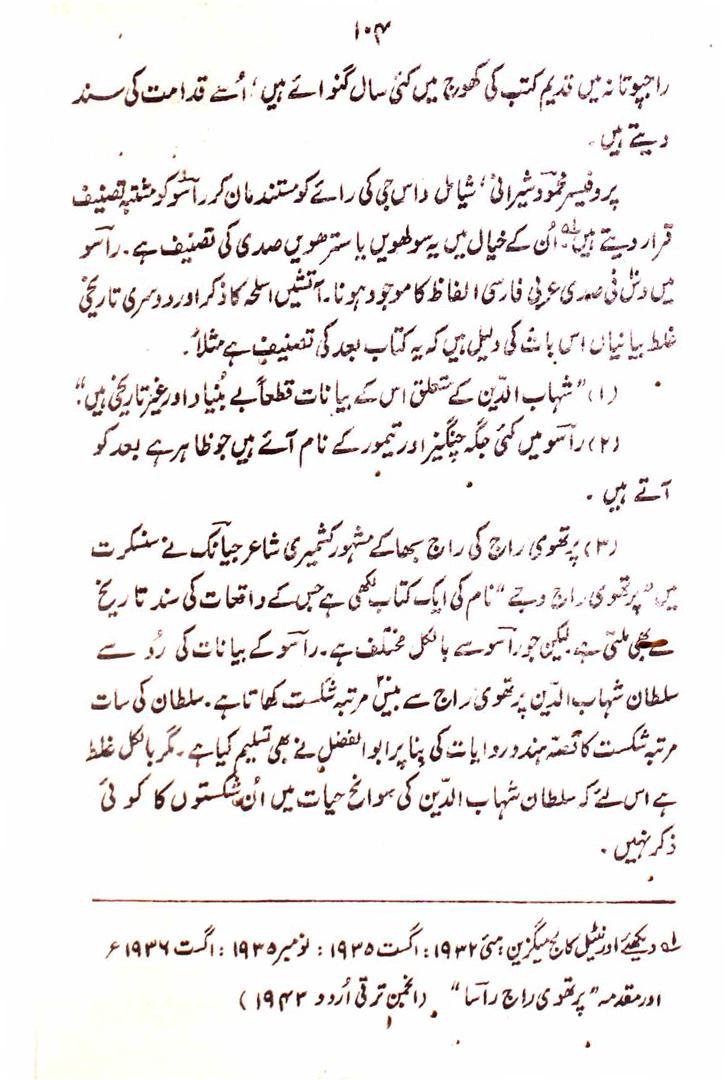 ۱۰۴
راجپوتانہ میں قدیم کتب کی کھوج میں کئی سال گنوائے ہیں، اُسے قدامت کی سند
دیتے ہیں۔
پروفیسر محمود شیرانی، شیامل داس جی کی رائے کو مستند مان کر راسو کو مشتبہ تصنیف
قرار دیتے ہیں۔ اُن کے خیال میں یہ سولھویں یا سترھویں صدی کی تصنیف ہے۔ راسو
میں دس فی صدی عربی فارسی الفاظ کا موجود ہونا۔ آتشیں اسلحہ کا ذکر اور دوسری تاریخی
غلط بیانیاں اس بات کی دلیل ہیں کہ یہ کتاب بعد کی تصنیف ہے مثلاً۔
(۱) "شہاب الدّین کے متعلق اس کے بیانات قطعاً بے بُنیاد اور غیر تاریخی ہیں"
(۲) راسو میں کئی جگہ چنگیز اور تیمور کے نام آئے ہیں جو ظاہر ہے بعد کو
آتے ہیں۔
(۳) پرتھوی راج کی راج سبھا کے مشہور کشمیری شاعر جیانک نے سنسکرت
میں "پرتھوی راج وجے" نام کی ایک کتاب لکھی ہے جس کے واقعات کی سند تاریخ
سے بھی ملتی ہے لیکن جو راسو سے بالکل مختلف ہے۔ راسو کے بیانات کی رُو سے
سلطان شہاب الدّین پرتھوی راج سے بیس مرتبہ شکست کھاتا ہے۔ سلطان کی سات
مرتبہ شکست کا قصّہ ہندو روایات کی بنا پر ابوالفضل نے بھی تسلیم کیا ہے۔ مگر بالکل غلط
ہے اس لئے کہ سلطان شہاب الدّین کی سوانح حیات میں اُن شکستوں کا کوئی
ذکر نہیں۔
لہ دیکھئے اورنٹیل کالج میگزین: مئی ۱۹۳۲: اگست ۱۹۳۵: نومبر ۱۹۳۵: اگست ۱۹۳۶ء
اور مقدمہ "پرتھوی راج راسا" (انجمن ترقی اُردو ۱۹۴۳)